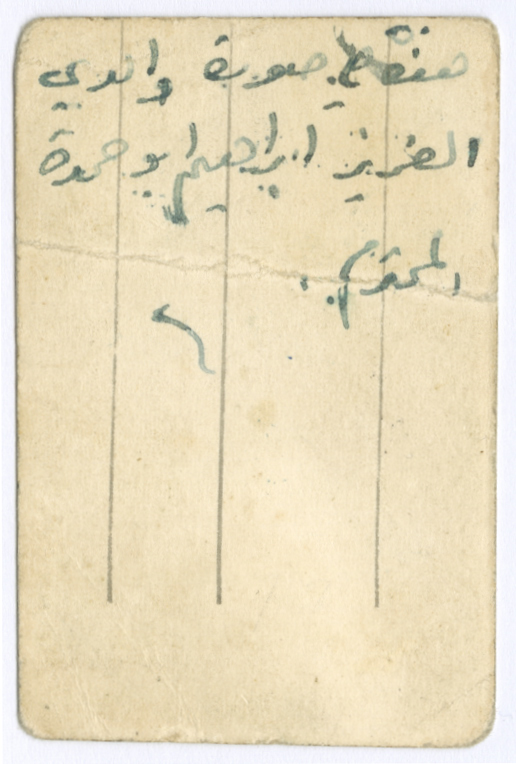 هذه صورة والدي
العزيز ابراهيم ابو حمدة
المحترم.